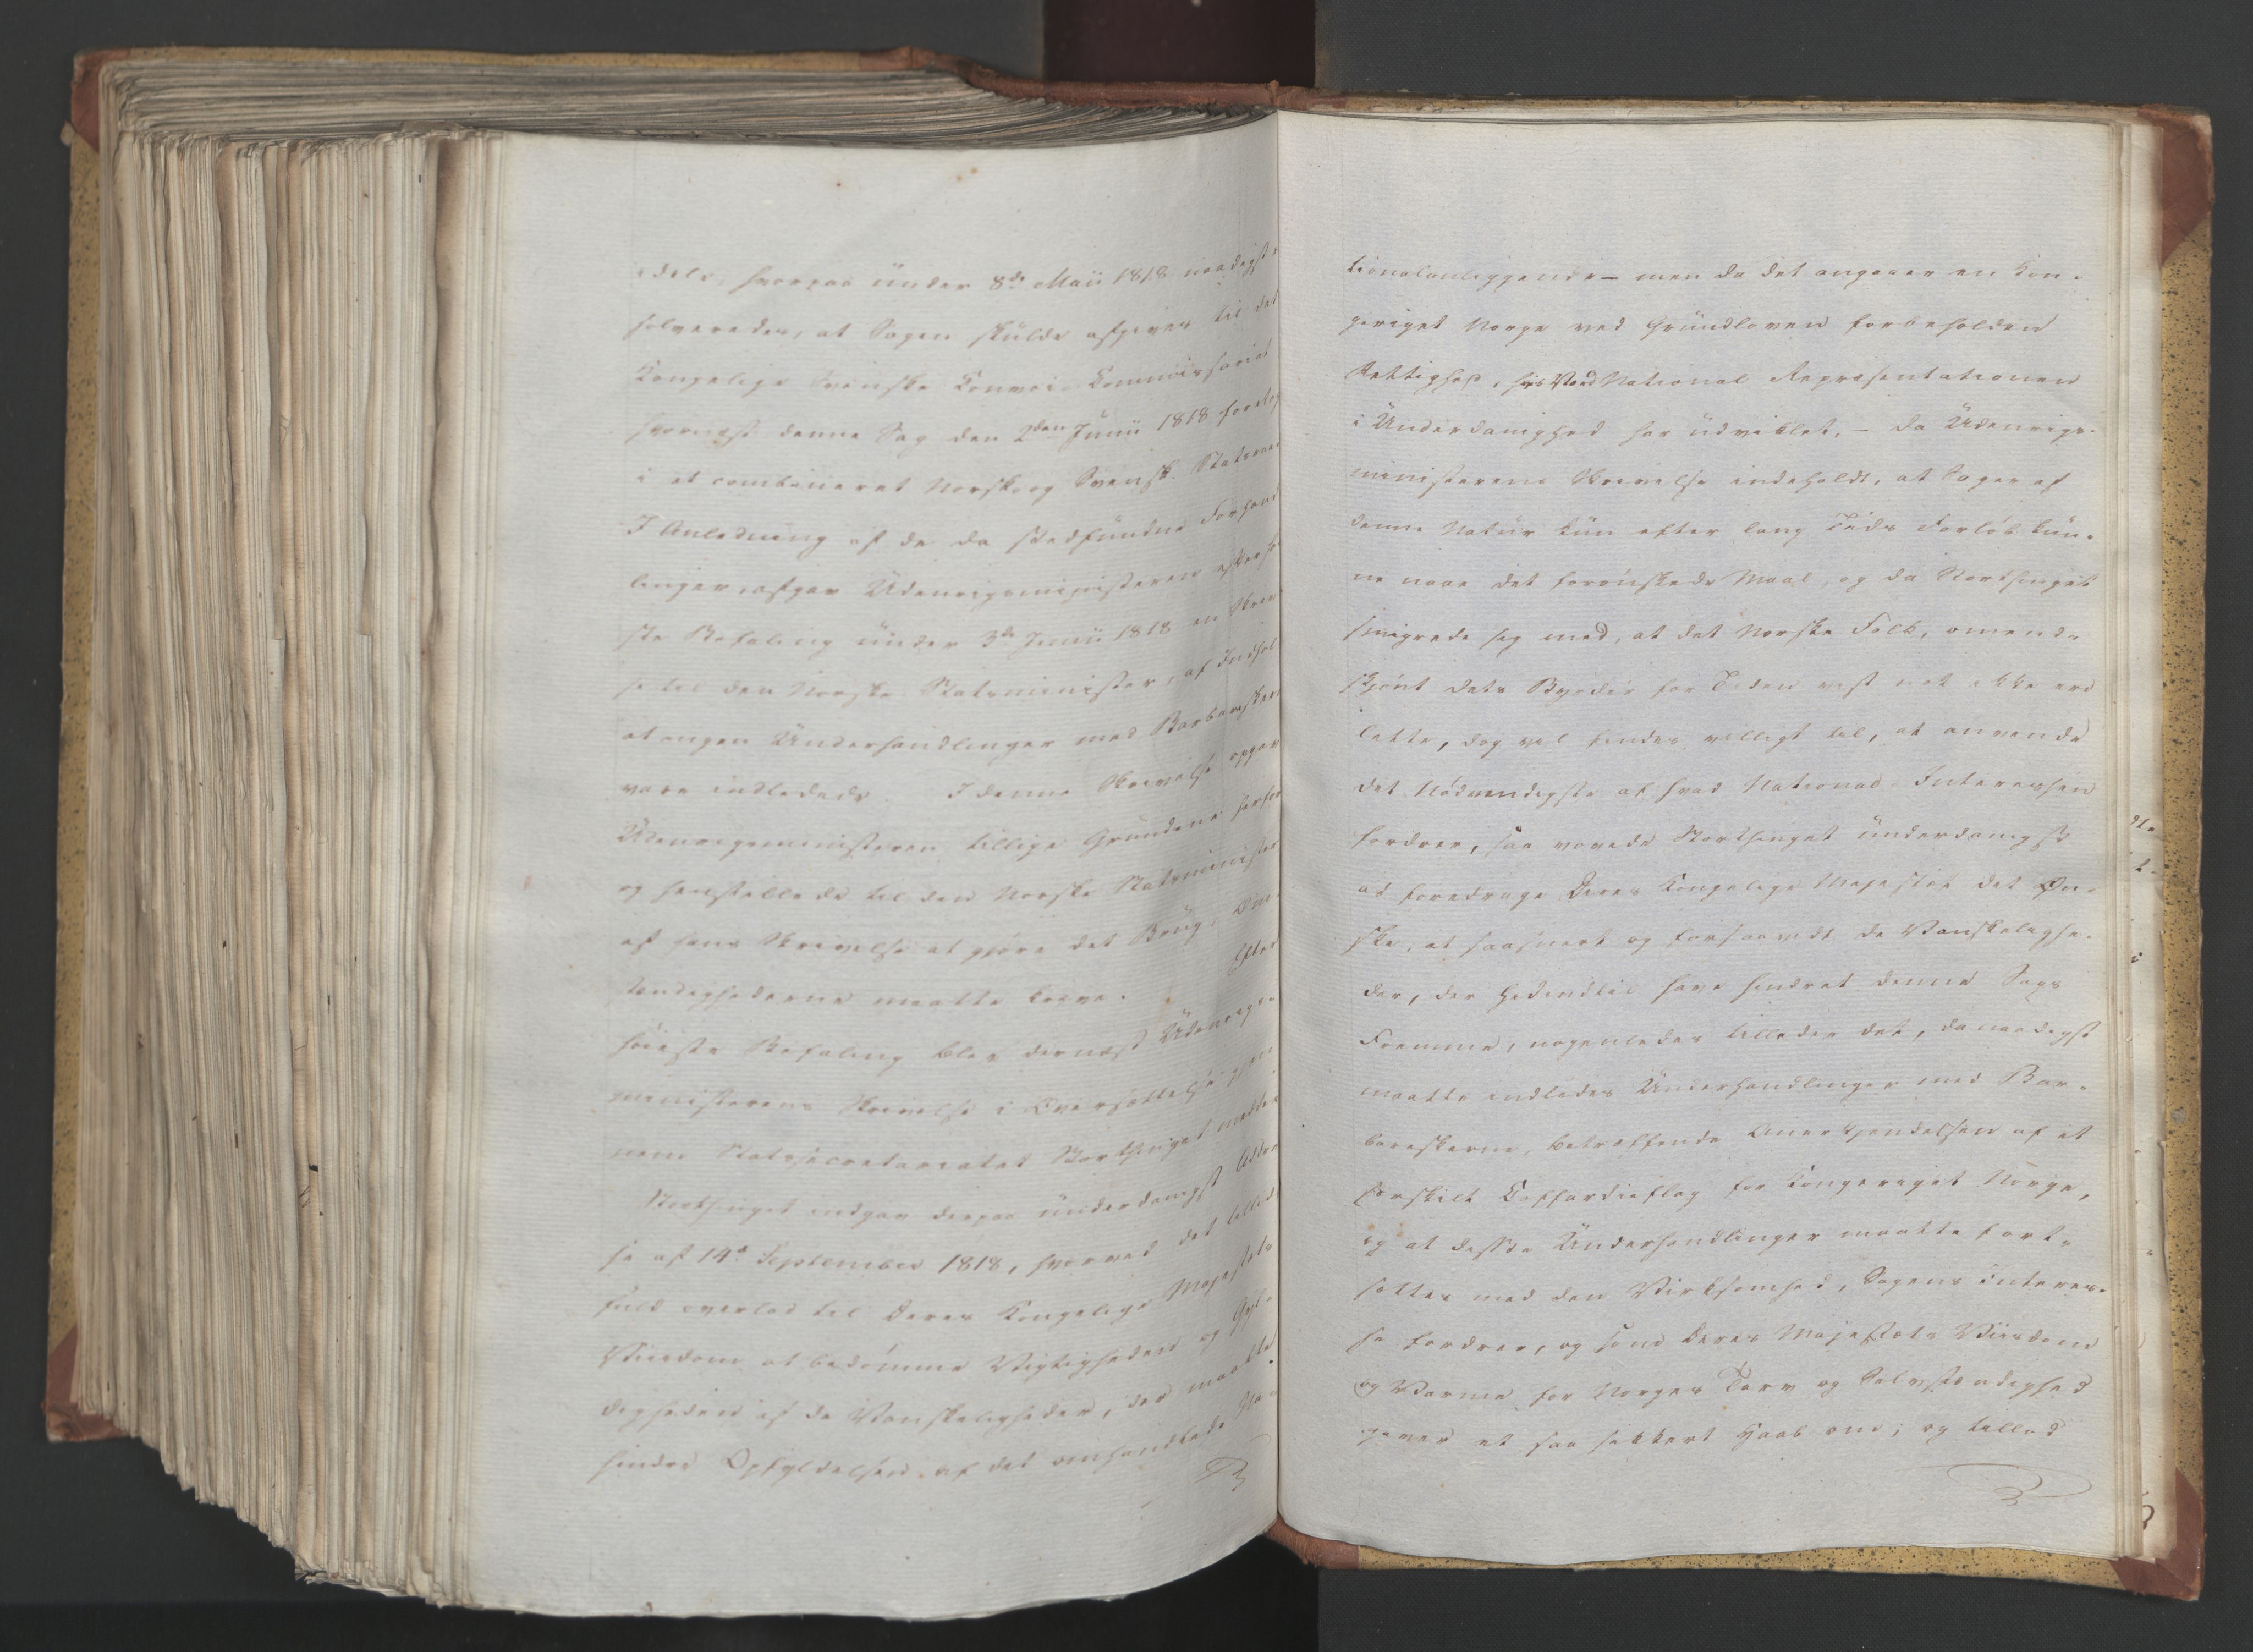 dele, hvorpaa ünder 8de Maii 1818 naadigst
solveredes, at Sagen skülde afgives til det
Kongelige Svenske Convoi Commissariat
hvornæst denne Sag den 2den Junii 1818 foretog
i et combineret Norsk og Svensk Statsraad
I Anledning af de da stedfündne Forhand
linger, afgav Üdenrigsministeren efter hø
ste Befaling ünder 3de Junii 1818 en Skriv
se til den Norske Statsminister, af Indhol
at ingen Ünderhandlinger med Barbaresker
vare indledede. I denne Skrivelse opgav
Üdenrigsministeren tillige Grundene herfor
og henstillede til den Norske Statsminister
af hans Skrivelse at gjøre det Brüg, Om-
stændighederne maatte kræve. Efter
høieste Befaling blev dernæst Üdenrigs-
ministerens Skrivelse i Oversættelse gjen
nem Statssecretariatet Storthinget meddel
Storthinget indgav derpaa ünderdanigst Addre
se af 14de September 1818, hvorved det tillids
fuld overlod til Deres Kongelige Majestæts
Viisdom at bedömme Vigtigheden og Gyl-
digheden af de Vanskeligheder, der maatte
hindre Opfyldelsen af det omhandlede Na-
tionalanliggende – men da det angaaer en Kon-
geriget Norge ved Gründloven forbeholden
Rettighed, hvis Værd National Repræsentationen
i Ünderdanighed har üdviklet, – da Üdenrigs-
ministerens Skrivelse indeholdt, at Sager af
denne Natür kün efter lang Tids Forløb kün-
ne naae det forønskede Maal, og da Storthinget
smigrede sig med, at det Norske Folk, omend-
skjønt dets Byrder for Tiden vist nok ikke ere
lette, dog vil findes villigt til, at anvende
det Nødvendigste af hvad National-Interessen
fordrer, saa vovede Storthinget ünderdanigst
at foredrage Deres Kongelige Majestæt det Øn-
ske, at saasnart og forsaavidt de Vanskelighe-
der, der hidindtil have hindret denne Sags
Fremme, nogenledes tillader det, da naadigst
maatte indledes Ünderhandlinger med Bar-
bareskerne, betræffende Anerkjendelsen af et
særskilt Coffardieflag for Kongeriget Norge,
og at disse Ünderhandlinger maatte fort-
sættes med den Virksomhed, Sagens Interes-
se fordrer, og som Deres Majestæts Viisdom
og Varme for Norges Tarv og Selvstændighed
giver et saa sikkert Haab om; og tillod